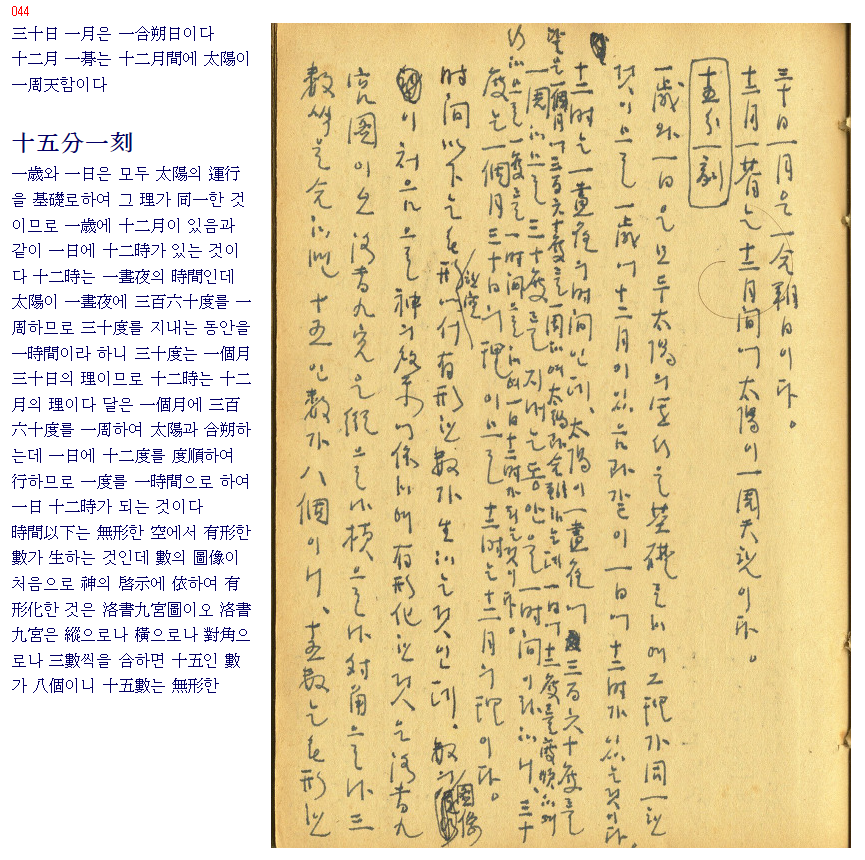 044
三十日 一月은 一合朔日이다
十二月 一朞는 十二月間에 太陽이
一周天함이다
十五分一刻
一歲와 一日은 모두 太陽의 運行
을 基礎로하여 그 理가 同一한 것
이므로 一歲에 十二月이 있음과
같이 一日에 十二時가 있는 것이
다 十二時는 一晝夜의 時間인데
太陽이 一晝夜에 三百六十度를 一
周하므로 三十度를 지내는 동안을
一時間이라 하니 三十度는 一個月
三十日의 理이므로 十二時는 十二
月의 理이다 달은 一個月에 三百
六十度를 一周하여 太陽과 合朔하
는데 一日에 十二度를 度順하여
行하므로 一度를 一時間으로 하여
一日 十二時가 되는 것이다
時間以下는 無形한 空에서 有形한
數가 生하는 것인데 數의 圖像이
처음으로 神의 啓示에 依하여 有
形化한 것은 洛書九宮圖이오 洛書
九宮은 縱으로나 橫으로나 對角으
로나 三數씩을 合하면 十五인 數
가 八個이니 十五數는 無形한
三十日 一月은 一合朔日이다。
十二月 一朞는 十二月間에 太陽이 一周天함이다。
十五分一刻
一歲와 一日은 모두 太陽의 運行을 基礎로하여 그 理가 同一한
것이므로 一歲에 十二月이 있음과 같이 一日에 十二時가 있는 것이다。
十二時는 一晝夜의 時間인데、太陽이 一晝夜에 三百六十度를
달은 一個月에 三百六十度를 一周하여 太陽과 合朔하는데 一日에 十二度를 度順하여
一周하므로 三十度를 지내는 동안을 一時間이라 하니、三十
行하므로 一度를 一時間으로 하여 一日 十二時가 되는 것이다。
度는 一個月 三十日의 理이므로 十二時는 十二月의 理이다。
時間以下는 無形한 有形한 數가 生하는 것인데、數의 圖像
이 처음으로 神의 啓示에 依하여 有形化한 것은 洛書九
宮圖이오 洛書九宮은 縱으로나 橫으로나 對角으로나 三
數씩을 合하면 十五인 數가 八個이니、十五數는 無形한